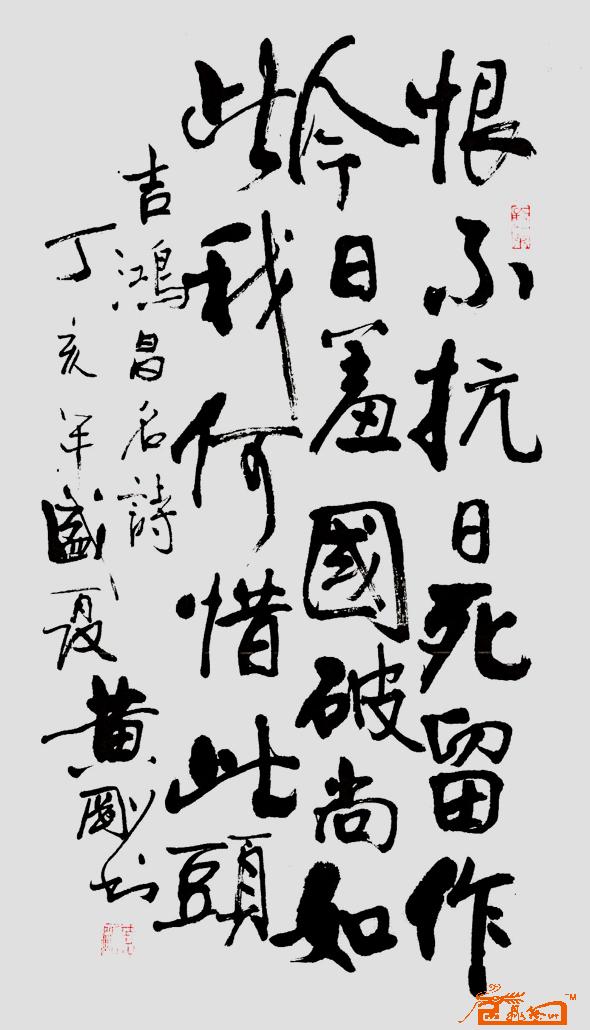 恨不抗日死留作
今日羞國破尚如
此我何惜此頭
吉鴻昌名詩
丁亥年盛夏黃剛书